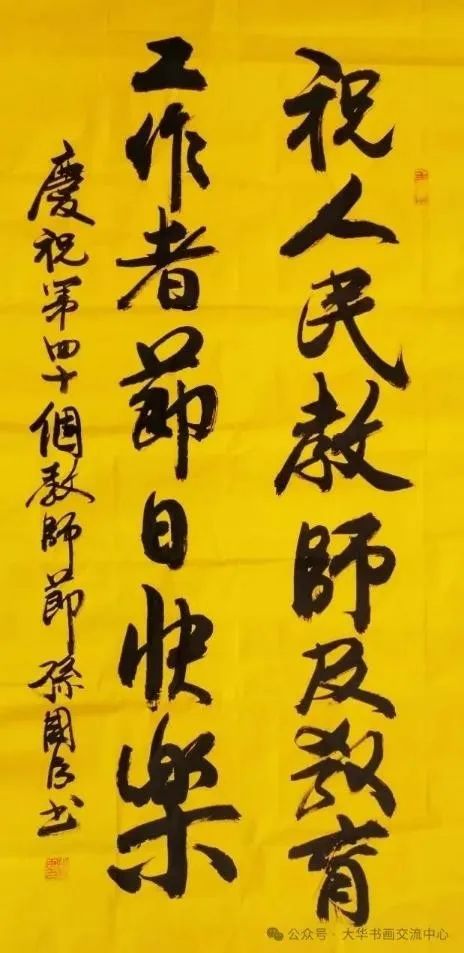 祝人民教師及教育
工作者節日快樂
慶祝第四十個教師節孫國民书
公众号·大华书画交流中心